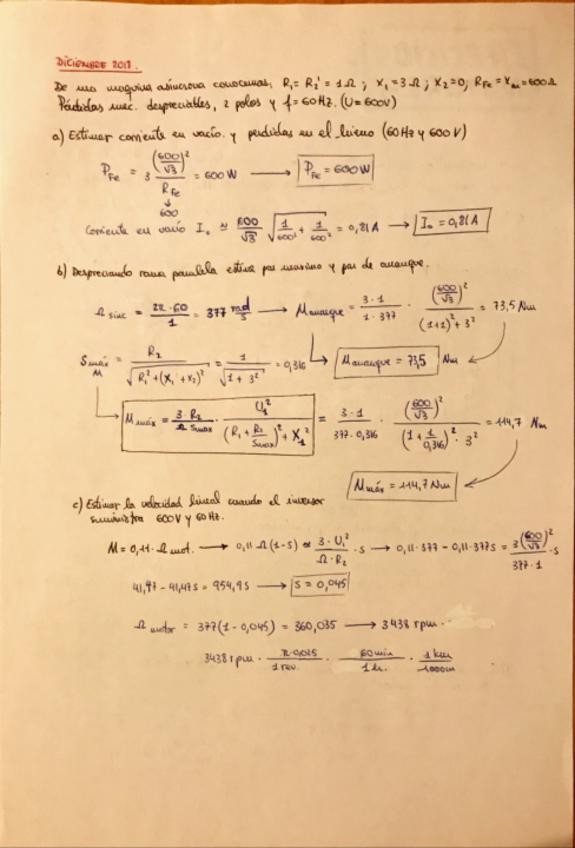 DICIEMBRE 2017.
De una maquina asincrona conocemos, R₁ = R₂' = 1 Ω ; X₁ = 3 Ω ; X₂ = 0 ; R_Fe = X_m = 600 Ω
Pérdidas mec. despreciables, 2 polos y f = 60 Hz. (U = 600V)
a) Estimar corriente en vacío y perdidas en el hierro (60 Hz y 600 V)
P_Fe = 3 (600/√3)² / R_Fe = 600 W → P_Fe = 600 W
↓
600
Corriente en vacío I₀ ≈ 600/√3 √(1/600² + 1/600²) = 0,81 A → I₀ = 0,81 A
b) Despreciando rama paralela estima par maximo y par de arranque.
Ω sinc = 2π·60/1 = 377 rad/s → M arranque = 3·1/1·377 · (600/√3)²/(1+1)² + 3² = 73,5 Nm
S máx M = R₂/√(R₁² + (X₁ + X₂)²) = 1/√(1 + 3²) = 0,316 → M arranque = 73,5 Nm
M máx = 3·R₂/Ω Smax · U₁²/(R₁ + R₂/Smax)² + X₁² = 3·1/377·0,316 · (600/√3)²/(1 + 1/0,316)² · 3² = 114,7 Nm
M máx = 114,7 Nm
c) Estimar la velocidad lineal cuando el inversor
suministra 600V y 60 Hz.
M = 0,11 · Ω mot. → 0,11 Ω (1-S) ≈ 3·U₁²/Ω·R₂ · S → 0,11·377 - 0,11·377S = 3(600/√3)²/377·1 · S
41,47 - 41,47S = 954,9S → S = 0,045
Ω motor = 377(1 - 0,045) = 360,035 → 3438 rpm
3438 rpm · π·0,025/1 rev. · 60 min/1 h. · 1 km/1000m